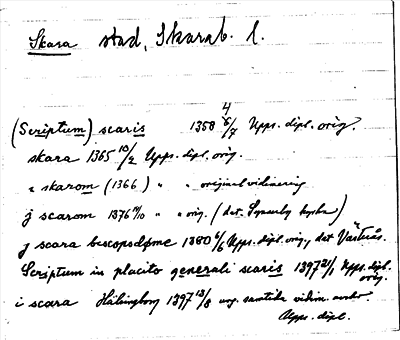 Skara stad, Skarab. l.
(Scriptum) scaris 1358 4/6/7 Upps. dipl. orig.
skara 1365 10/2 Upps. dipl. orig.
" skarom (1366) " " originalvidimering
j scarom 1376 " orig. (dat. kyrka)
j scara bescopsdøme 1380 6/6 Upps. dipl. orig., dat Västerås.
Scriptum in placito generali scaris 1397 21/1 Upps. dipl. orig.
i scara Hälsingborg 1397 13/8 vidim.
Upps. dipl.